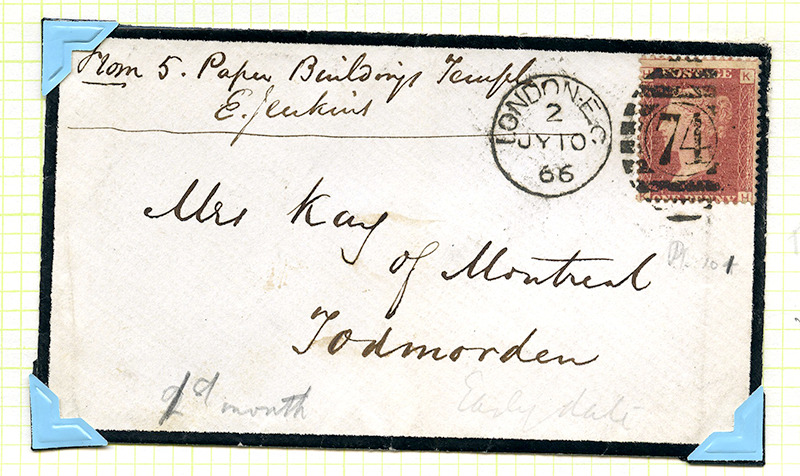 From 5. Paper Buildings Temple
E. Jenkins
LONDON·E.C
2
JY 10
66
74
POSTAGE
K
ONE PENNY
H
Mrs Kay
of Montreal
Todmorden
month
Early date